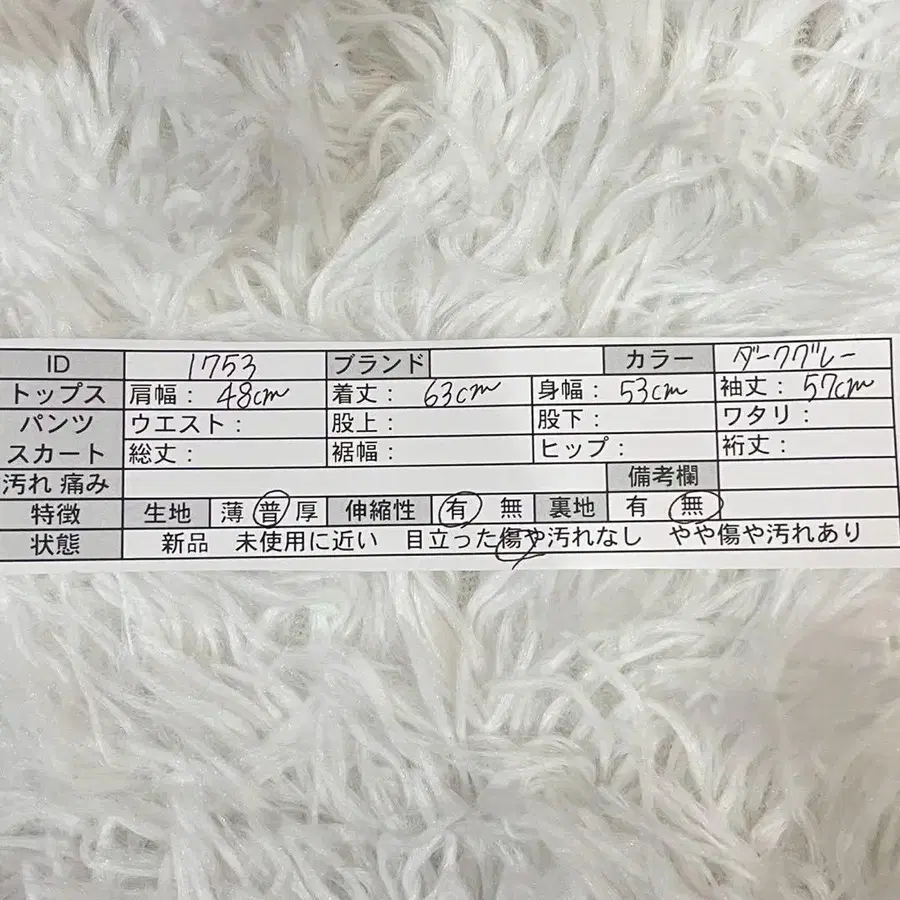 ID 1753 ブランド カラー ダークグレー
トップス 肩幅: 48cm 着丈: 63cm 身幅: 53cm 袖丈: 57cm
パンツ ウエスト: 股上: 股下: ワタリ:
スカート 総丈: 裾幅: ヒップ: 裄丈:
汚れ 痛み 備考欄
特徴 生地 薄 普 厚 伸縮性 有 無 裏地 有 無
状態 新品 未使用に近い 目立った傷や汚れなし やや傷や汚れあり